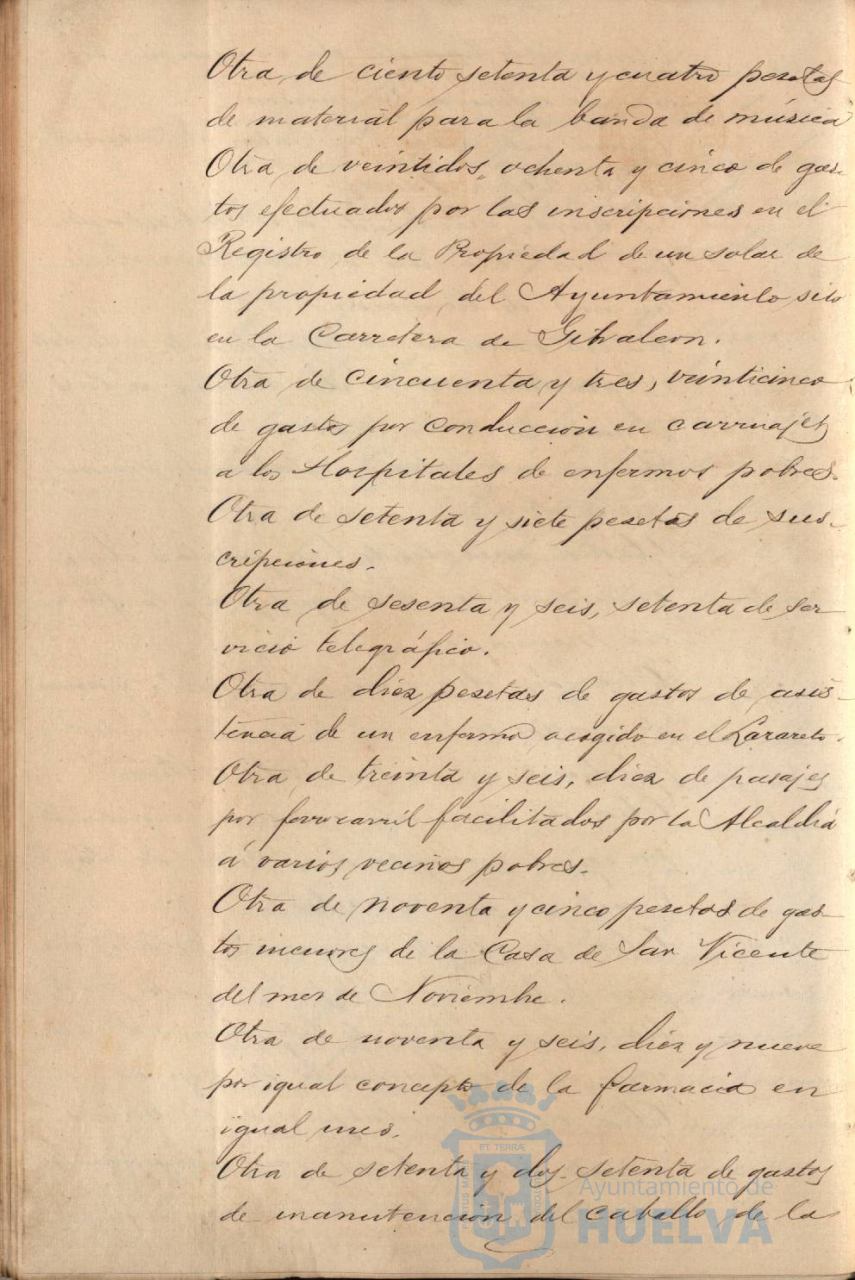 Otra de ciento setenta y cuatro pesetas
de material para la banda de música
Otra de veintidos, ochenta y cinco de gas-
tos efectuados por las inscripciones en el
Registro de la Propiedad de un solar de
la propiedad del Ayuntamiento sito
en la Carretera de Gibraleon.
Otra de cincuenta y tres, veinticinco
de gastos por conducción en carruajes
a los Hospitales de enfermos pobres.
Otra de setenta y siete pesetas de sus-
cripciones.
Otra de sesenta y seis, setenta de ser
vicio telegráfico.
Otra de diez pesetas de gastos de asis-
tencia de un enfermo acogido en el Lazareto.
Otra de treinta y seis, diez de pasajes
por ferrocarril facilitados por la Alcaldía
á varios vecinos pobres.
Otra de noventa y cinco pesetas de gas-
tos menores de la Casa de San Vicente
del mes de Noviembre.
Otra de noventa y seis, diez y nueve
por igual concepto de la farmacia en
igual mes.
Otra de setenta y dos, setenta de gastos
de manutencion del caballo de la
ET TERRÆ
Ayuntamiento de
HUELVA